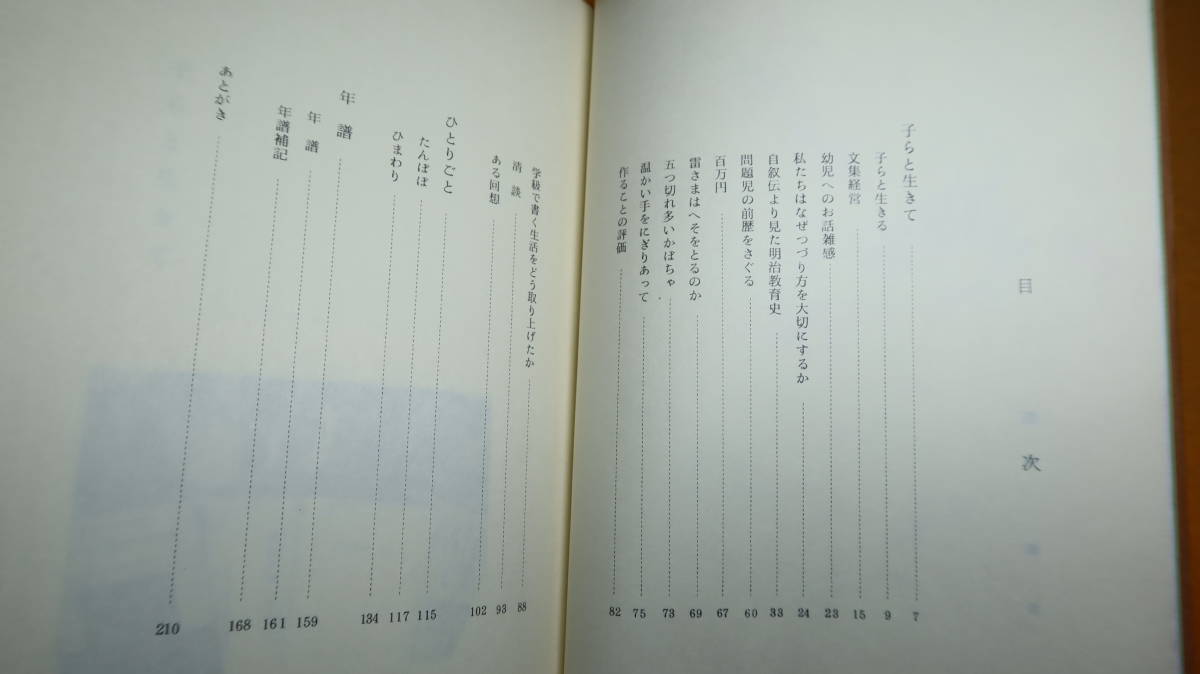 目次
子らと生きて 7
子らと生きる 9
文集経営 15
幼児へのお話雑感 23
私たちはなぜつづり方を大切にするか 24
自叙伝より見た明治教育史 33
問題児の前歴をさぐる 60
百万円 67
雷さまはへそをとるのか 69
五つ切れ多いかぼちゃ 73
温かい手をにぎりあって 75
作ることの評価 82
学級で書く生活をどう取り上げたか 88
清談 93
ある回想 102
ひとりごと 115
たんぽぽ 117
ひまわり 134
年譜 159
年譜 161
年譜補記 168
あとがき 210